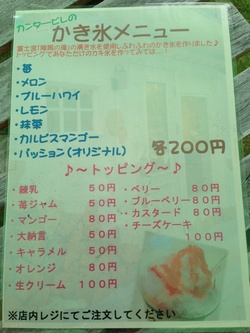 カンタービレの
かき氷メニュー
富士宮「陣馬の滝」の湧き水を使用しふわふわのかき氷を作りました♪
トッピングであなただけのカキ氷を作ってみては…!
・苺
・メロン
・ブルーハワイ
・レモン
・抹茶
・カルピスマンゴー
・パッション(オリジナル)
各200円
♪～トッピング～♪
・練乳 50円
・苺ジャム 50円
・マンゴー 80円
・大納言 50円
・キャラメル 50円
・オレンジ 80円
・生クリーム 100円
・ベリー 80円
・ブルーベリー 80円
・カスタード 80円
・チーズケーキ
100円
※店内レジにてご注文してください